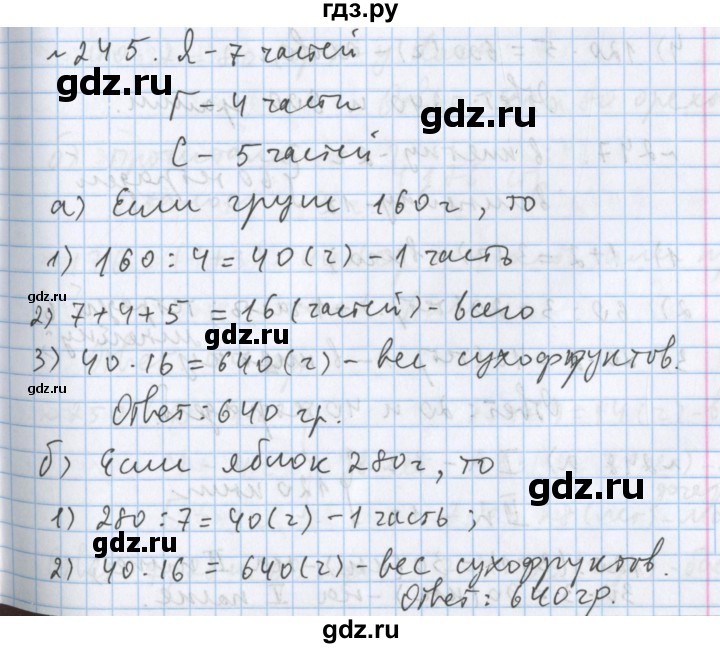 гдз.ру
№245. Я – 7 частей
gdz.ru
gdz.ru
Г – 4 части
С – 5 частей
а) Если груш 160г, то
1) 160 : 4 = 40 (г) – 1 часть
gdz.ru
2) 7+4+5 = 16 (частей) – всего
gdz.ru
3) 40 · 16 = 640 (г) – вес сухофруктов.
gdz.ru
Ответ: 640 гр.
б) Если яблок 280г, то
gdz.ru
gdz.ru
1) 280 : 7 = 40 (г) – 1 часть ;
2) 40 · 16 = 640 (г) – вес сухофруктов.
gdz.ru
Ответ: 640гр.
гдз.ру